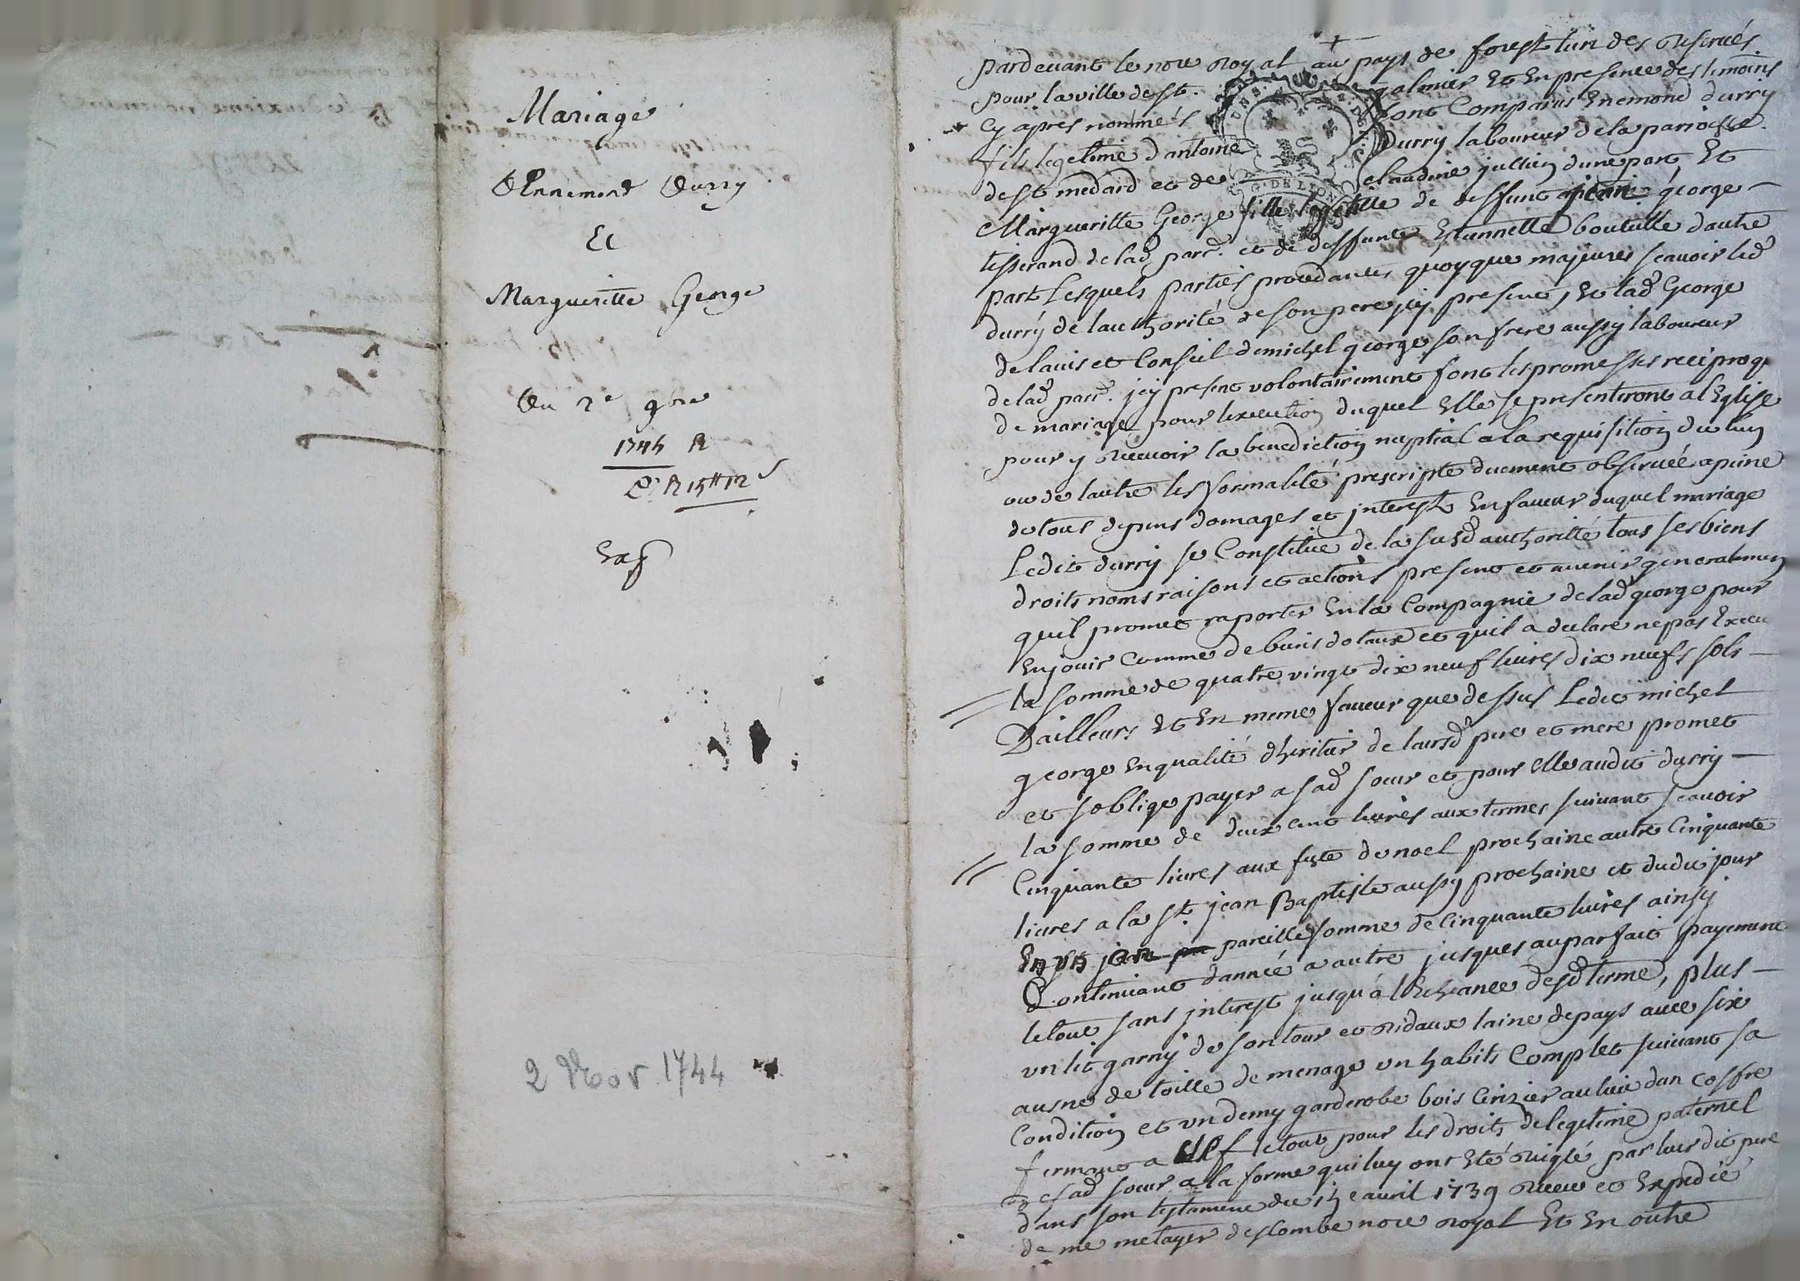 Mariage
D'Ennemond Durry
Et
Margueritte George
Du 2e 9bre
1744
Exp
2 Nov 1744
pardevant le nore royal au pays de forest lun des reservés
pour la ville de st. galmier Et En presence des temoins
cy apres nommés sont Comparus Enemond durry
fils legetime d'antoine Durry laboureur de la parroisse
de st medard et de claudine jullien dune part Et
Margueritte George fille legetime de deffunt jean george
tisserand de lad parr. et de deffunte Etiennette boutulle dautre
part Lesquels parties procedantes quoyque majeures scavoir led
durry de lauthorité de son pere jcy present, Et lad George
de lavis et Conseil de michel george son frere aussy laboureur
de lad parr. jcy present volontairement font les promesses reciproq
de mariage pour lexecution duquel Elle se presenteront a l'Eglise
pour y recevoir la benediction nuptial a la requisition de lun
ou de lautre les formalité prescripte duement observée a peine
de tous depens domages et jnterest En faveur duquel mariage
Ledit durry se Constitue de la susd authorité tous ses biens
droits noms raisons et actions present et avenir generalement
quil promet raporter En la Compagnie de lad george pour
En jouir comme de biens dotaux et quil a declaré ne pas Exceder
la somme de quatre vingt dix neuf livres dix neufs sols
Dailleurs Et En meme faveur que dessus Ledit michel
george En qualité dheritier de leursd pere et mere promet
et soblige payer a sad soeur et pour elle audit durry
la somme de deux cent livres aux termes suivant scavoir
Cinquante livres aux feste de noel prochaine autre Cinquante
livres a la st. jean Baptiste aussy prochaine et dudit jour
En un pareille somme de cinquante livres ainsy
Continuant dannée a autre jusques au parfait payement
le tout sans jnterest jusqu'a l'Echeance desd terme, plus
un lit garny de son tour et ridaux laine de pays avec six
ausne de toille de menage un habits Complet suivant sa
Condition et un demy garderobe bois Cerizier au lieu dun coffre
fermant a clef le tout pour les droits de legetime paternel
de sad soeur a la forme qui luy ont Eté reiglé par leur dit pere
dans son testament du avril 1739 receu et Expedié
de me metayer descombe nore royal Et En outre